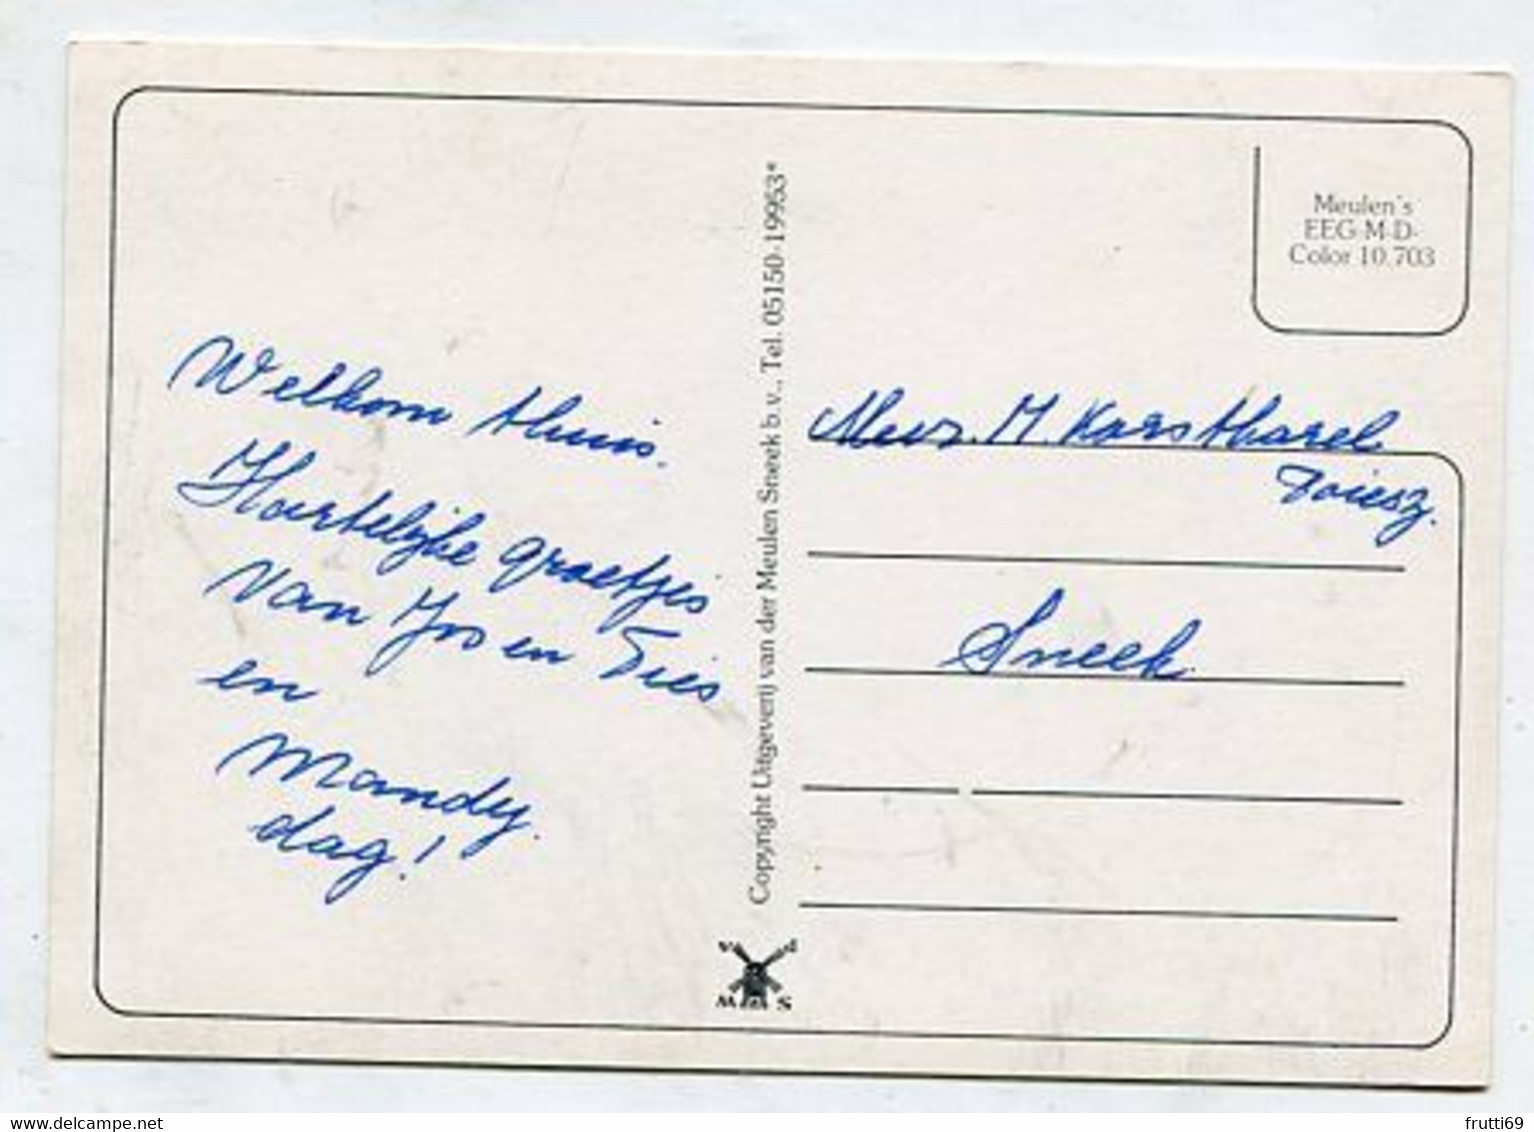 Welkom thuis.
Hartelijke groetjes
van Jos en Dies
en
Mandy.
dag!
Copyright Uitgeverij van der Meulen Sneek b.v., Tel. 05150-19953*
v d
M S
Meulen's
EEG-M-D-
Color 10.703
Mevr. M. Karstharel
Sneek.
frutti69